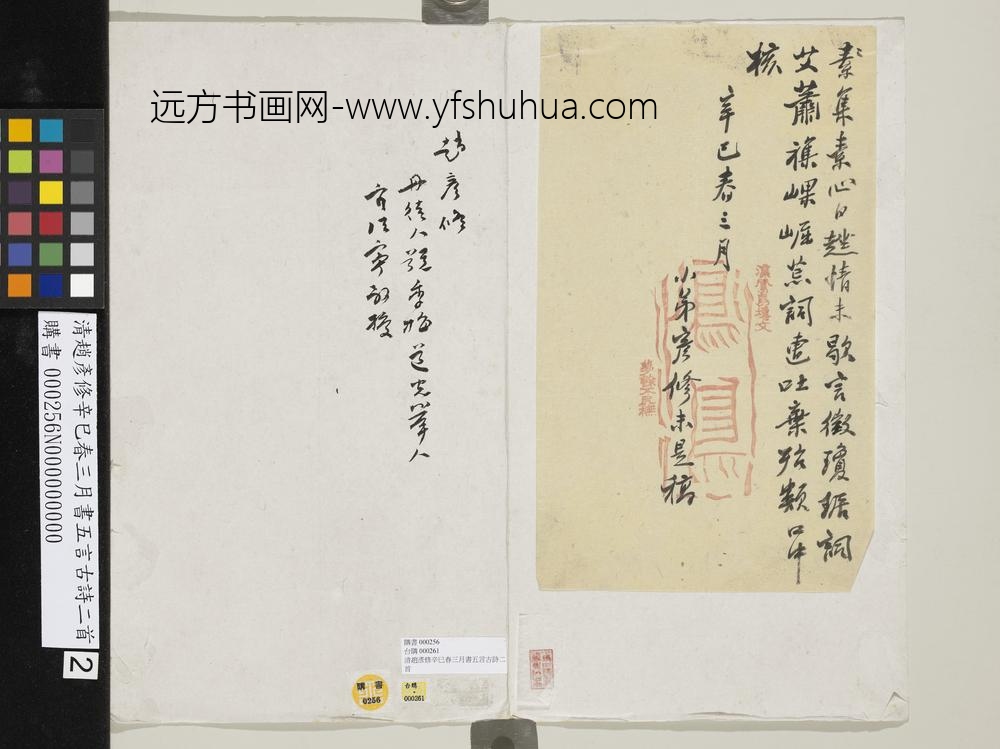 远方书画网-www.yfshuhua.com
素集素心日趂情未歇言徵瓊琚詞
艾蕭襍㠏崛荒詞遭吐棄殆類口中
核
辛巳春三月
小弟彥修未是稿
趙彥修
丹徒人號季梅道光舉人
官江寧教授
清趙彥修辛巳春三月書五言古詩二首
購書 000256N000000000
2
購書 000256
台購 000261
清趙彥修辛巳春三月書五言古詩二
首
購書
0256
台購
000261